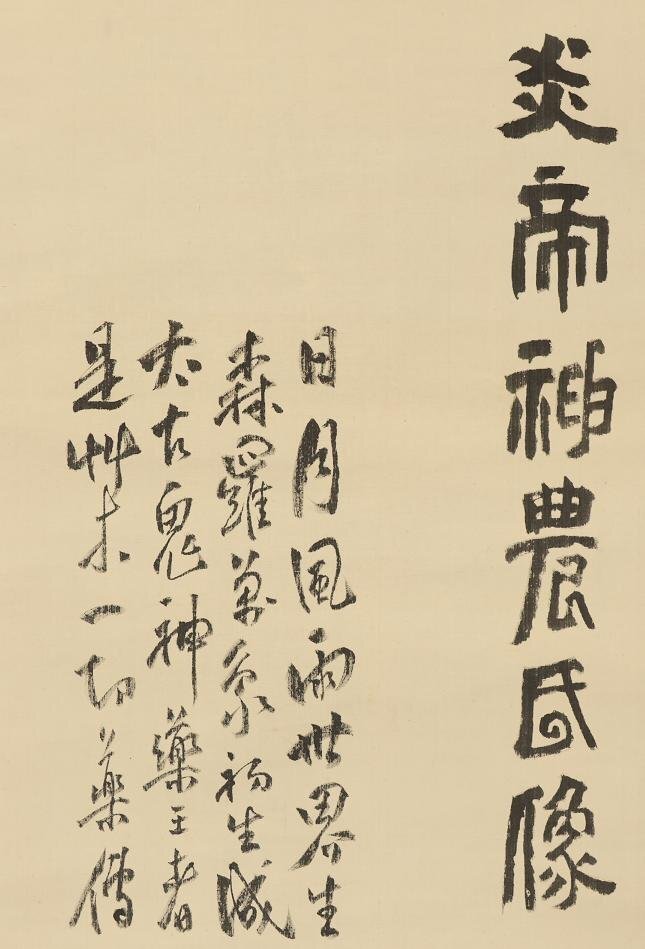 炎帝神農氏像
日月風雨世界生
森羅萬象初生滅
太古鬼神藥王者
是艸木一切藥傳